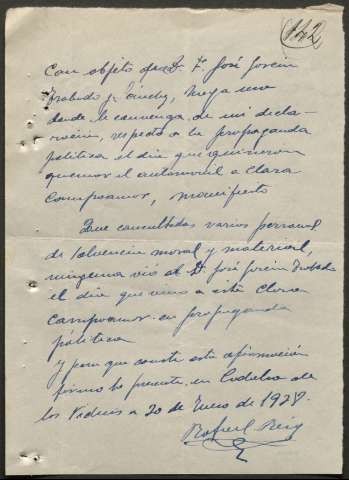 142
Con objeto que D. José García
Trabado y Sánchez, haga uso
donde le convenga de mi decla-
ración, respecto a la propaganda
política el día que quisieron
quemar el automóvil a Clara
Campoamor, manifiesto
Que consultadas varias personas
de solvencia moral y material,
ninguna vio al D. José García Trabado
el día que vino a esta Clara
Campoamor en propaganda
política
y para que conste esta afirmación
firmo la presente en de
los Vidrios a 20 de Enero de 1938.
Rafael Reig